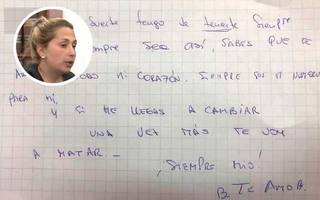 SUERTE TENGO DE TENERTE SIEMPRE
SER ASÍ, SABES QUE TE
MI CORAZÓN. SIEMPRE
PARA MÍ,
Y SI ME LLEGAS A CAMBIAR
UNA VEZ MÁS TE VOY
A MATAR -
¡SIEMPRE MÍO!
B. TE AMO